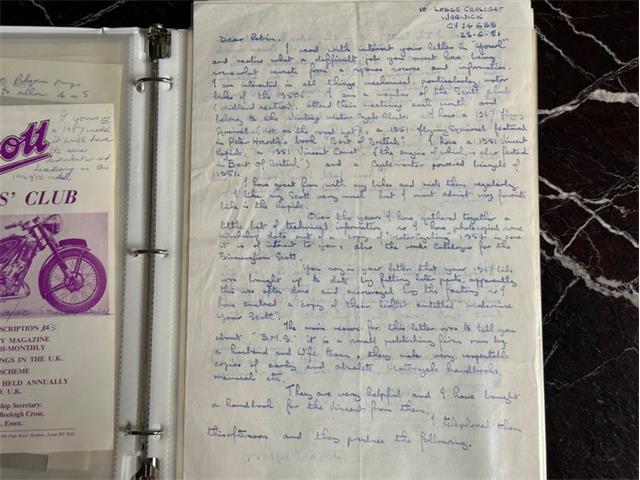 10 LODGE CRESCENT
WARWICK
CV34 6BB
23-6-86
Dear Robin,
I read with interest your letter in "Yowl"
and realise what a difficult job you must have being
somewhat remote from spares source and information.
I am interested in all things mechanical, particularly motor
bikes of the 1950s. I am a member of the Scott club
(Midland section), attend their meetings each month and
belong to the Vintage Motor Cycle Club. I have a 1947 flying
Squirrel (not on the road yet), a 1951 flying Squirrel featured
in Peter Howdle's book "Best of British". I have a 1951 Vincent
Rapide, a 1951 Vincent Comet (the engine of which is also
in "Best of British") and a Cyclemotor powered bicycle of
1951.
I have great fun with my bikes and ride them regularly
I like the Scott very much but I must admit my favourite
bike is the Rapide.
Over the years I have gathered together a
little bit of technical information so I have photocopied some
data out of my copy of "Motorcycling" 1957 in case
it is of interest to you, also the works catalogue for the
Birmingham Scott.
You say in your letter that your 1947 bike
was brought up to date by fitting later parts, apparently
this was often done and encouraged by the factory so I
have enclosed a copy of their leaflet entitled "Modernise
Your Scott".
The main reason for this letter was to tell you
about "B.M.S." it is a small publishing firm run by
a husband and wife team, they make very respectable
copies of early and obsolete motorcycle handbooks,
manuals etc.
They are very helpful and I have bought
a handbook for the Vincent from them.
I telephoned them
this afternoon and they produce the following.
to allow 4 to 5
If yours is
a 1957 model
it will have
to one
headlamp as this
model
ott
S' CLUB
SCRIPTION £6.5
Y MAGAZINE
BI-MONTHLY
NGS IN THE U.K.
SCHEME
HELD ANNUALLY
E U.K.
hip Secretary:
Beeleigh Cross,
, Essex.